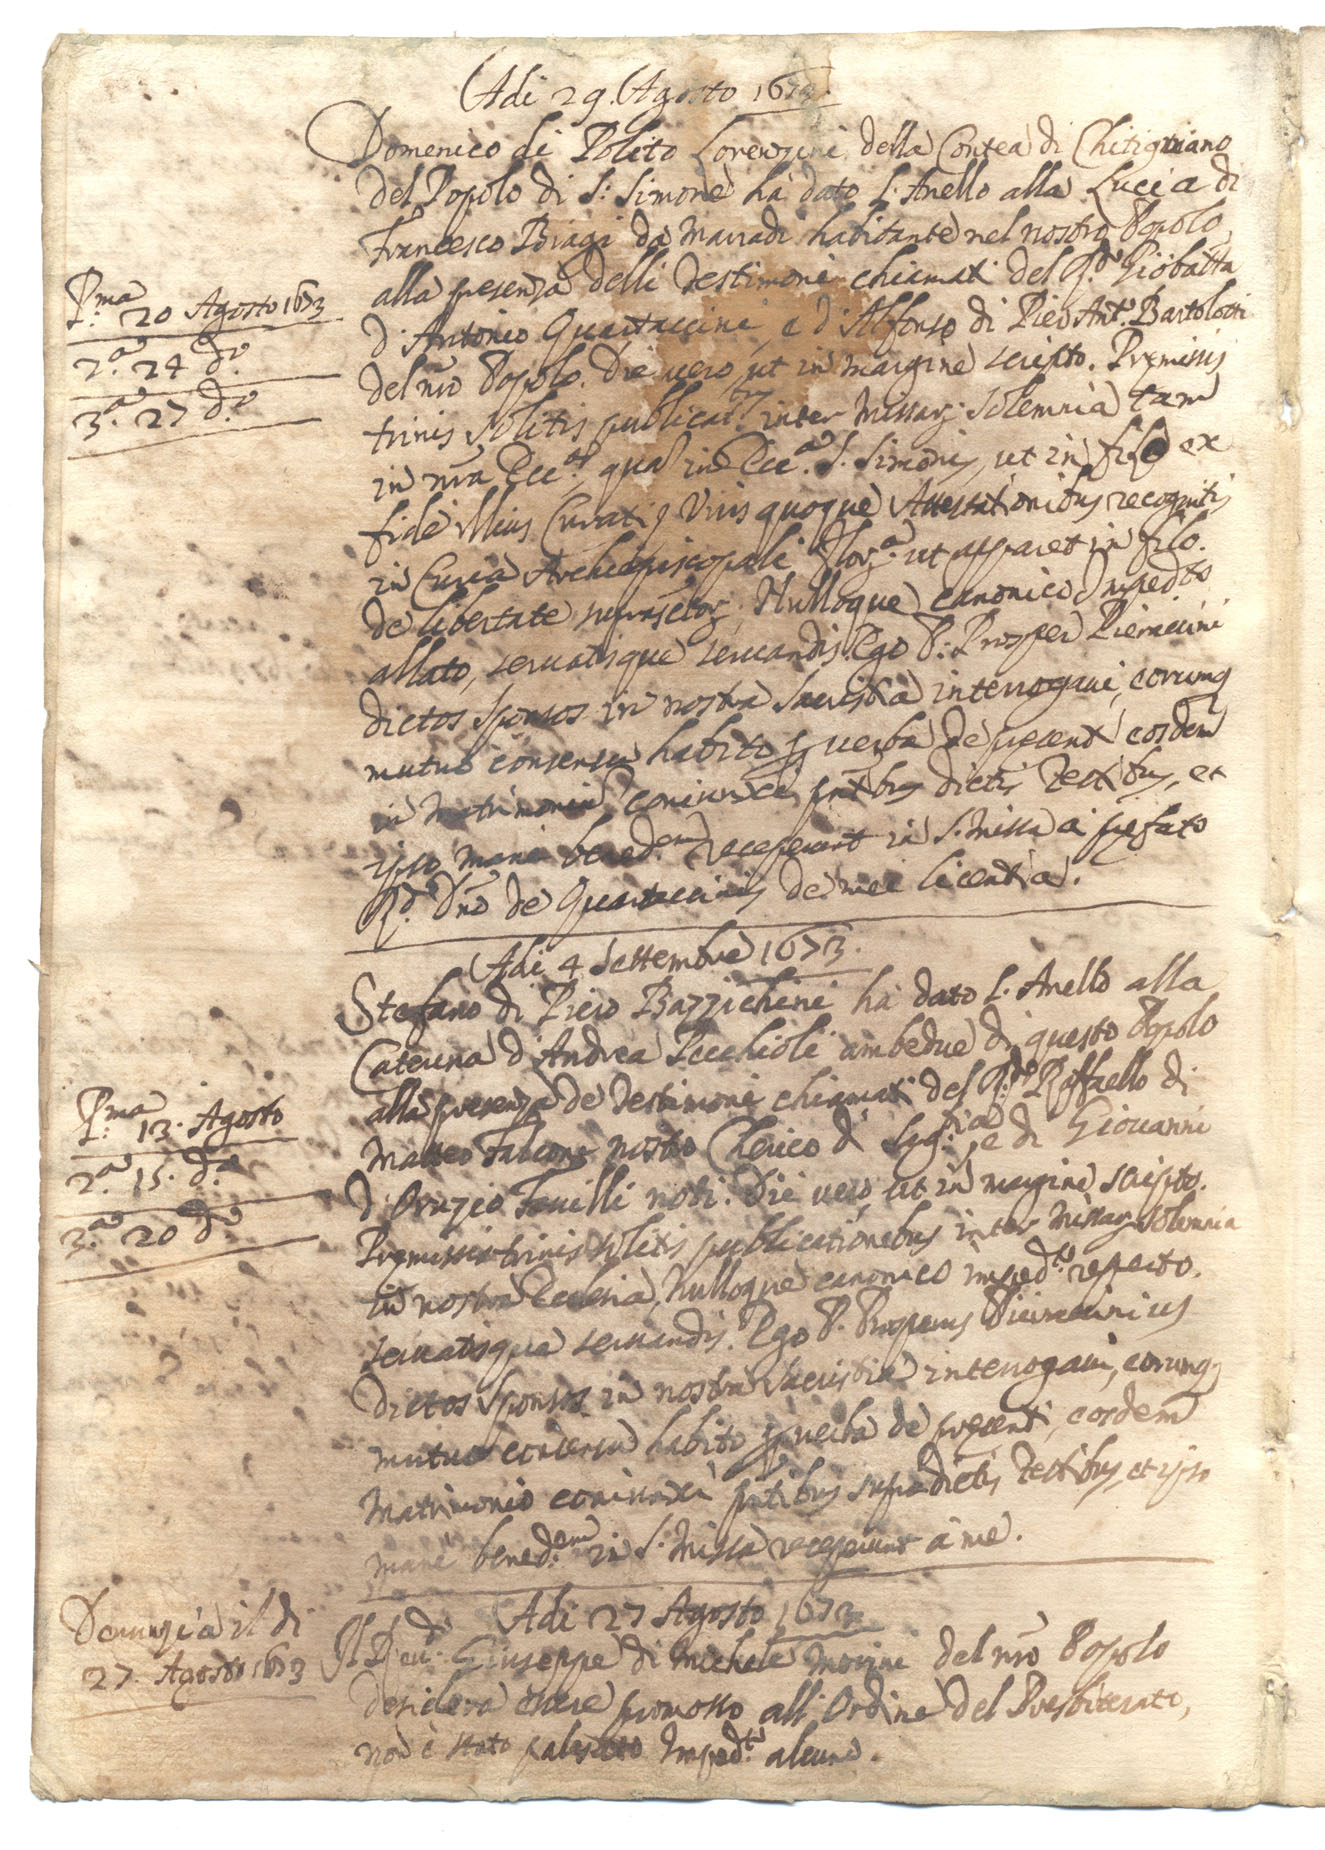 Adi 29. Agosto 1673.
Domenico di Polito Lorenzini della Contea di Chitignano
del Popolo di S: Simone hà dato l'Anello alla Lucia di
Francesco Biagi da Marradi habitante nel nostro Popolo,
alla presenza delli Testimoni chiamati del R.do Giobatta
d'Antonio Quartaccini, e d'Alfonso di Pier Ant.o Bartolotti
del nro Popolo. Die vero ut in margine scripto. Premissis
trinis solitis publicat.bus inter Missar; solemnia tam
in nra Ecc.a, quā in Ecc.a S. Simonis, ut in filo ex
fide illius Curati, Vivis quoque Attestationibus recognitis
in Curia Archiepiscopali Flor.a ut apparet in filo.
de libertate supradictor; Nulloque canonico Imped.to
allato, servatisque servandis. Ego P: Prosper Pieraccini
dictos sponsos in nostra sacristia interrogavi, eorumq
mutuo consensu habito p verba de presenti eosdem
in Matrimoniū coniunxi, pntibus dictis Testibus, et
ipso mane bened.em receperunt in S. Missa a prefato
R.do Dno de Quartaccinis de mei licentia.
Adi 4 Settembre 1673.
Stefano di Piero Bazzichini hà dato l'Anello alla
Caterina d'Andrea Pecchioli ambedue di questo Popolo
alla presenza de Testimoni chiamati del R.do Raffaello di
Matteo Falconi nostro Clerico di Sag.tia e di Giovanni
d'Orazio Favilli noti. Die vero, ut in margine scripto.
Premissis trinis solitis publicationibus inter Missar; solemnia
in nostra Ecclesia, Nulloque canonico imped.to reperto.
servatisque servandis. Ego P. Prosperus Pieraccinius
dictos Sponsos in nostra sacristia interrogavi, eorumq;
mutuo consensu habito p verba de presenti, eosdem
Matrimonio coniunxi pntibus supradictis Testibus, et ipso
mane bened.em in S. Missa receperunt à me.
Adi 27 Agosto 1673
Il R.eu.do Giuseppe di Michele Morini del nro Popolo
desidera essere promosso all'Ordine del Presbiterato,
non è stato palesato Imped.to alcuno.
P.ma 20 Agosto 1673
2.a 24 d.o
3.a 27 d.o
P.ma 13. Agosto
2.a 15. d.o
3.a 20 d.o
Denunzia il di
27. Agosto 1673